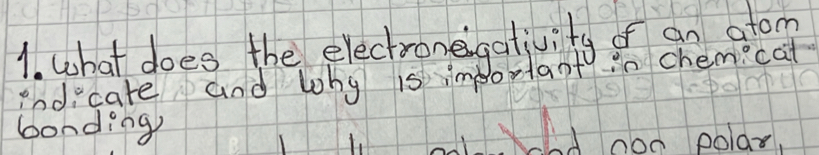 1. What does the electronegativity of an atom
indicate and why is important in chemical
bonding
and non polar,